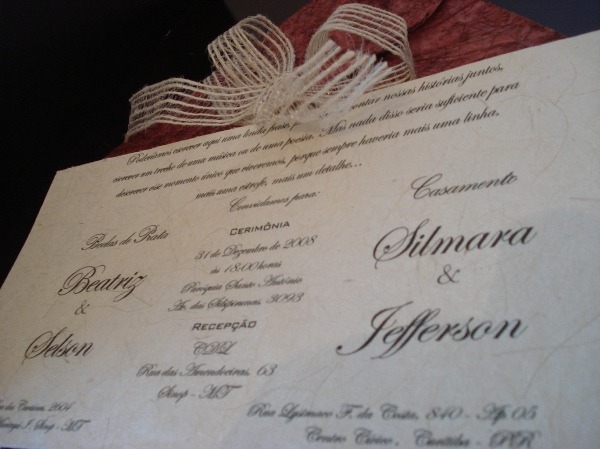 Poderíamos escrever aqui uma linda frase, contar nossas histórias juntos,
escrever um trecho de uma música ou de uma poesia. Mas nada disso seria suficiente para
descrever esse momento único que viveremos, porque sempre haveria mais uma linha,
mais uma estrofe, mais um detalhe...
Convidamos para:
Bodas de Prata
Beatriz
&
Selson
CERIMÔNIA
31 de Dezembro de 2008
às 18:00 horas
Paróquia Santo Antônio
Av. das Sibipirunas, 3093
RECEPÇÃO
CDL
Rua das Amendoeiras, 63
Sinop - MT
Casamento
Silmara
&
Jefferson
2004
I, Sinop - MT
Rua Lysimaco F. da Costa, 840 - Ap. 05
Centro Cívico, Curitiba - PR